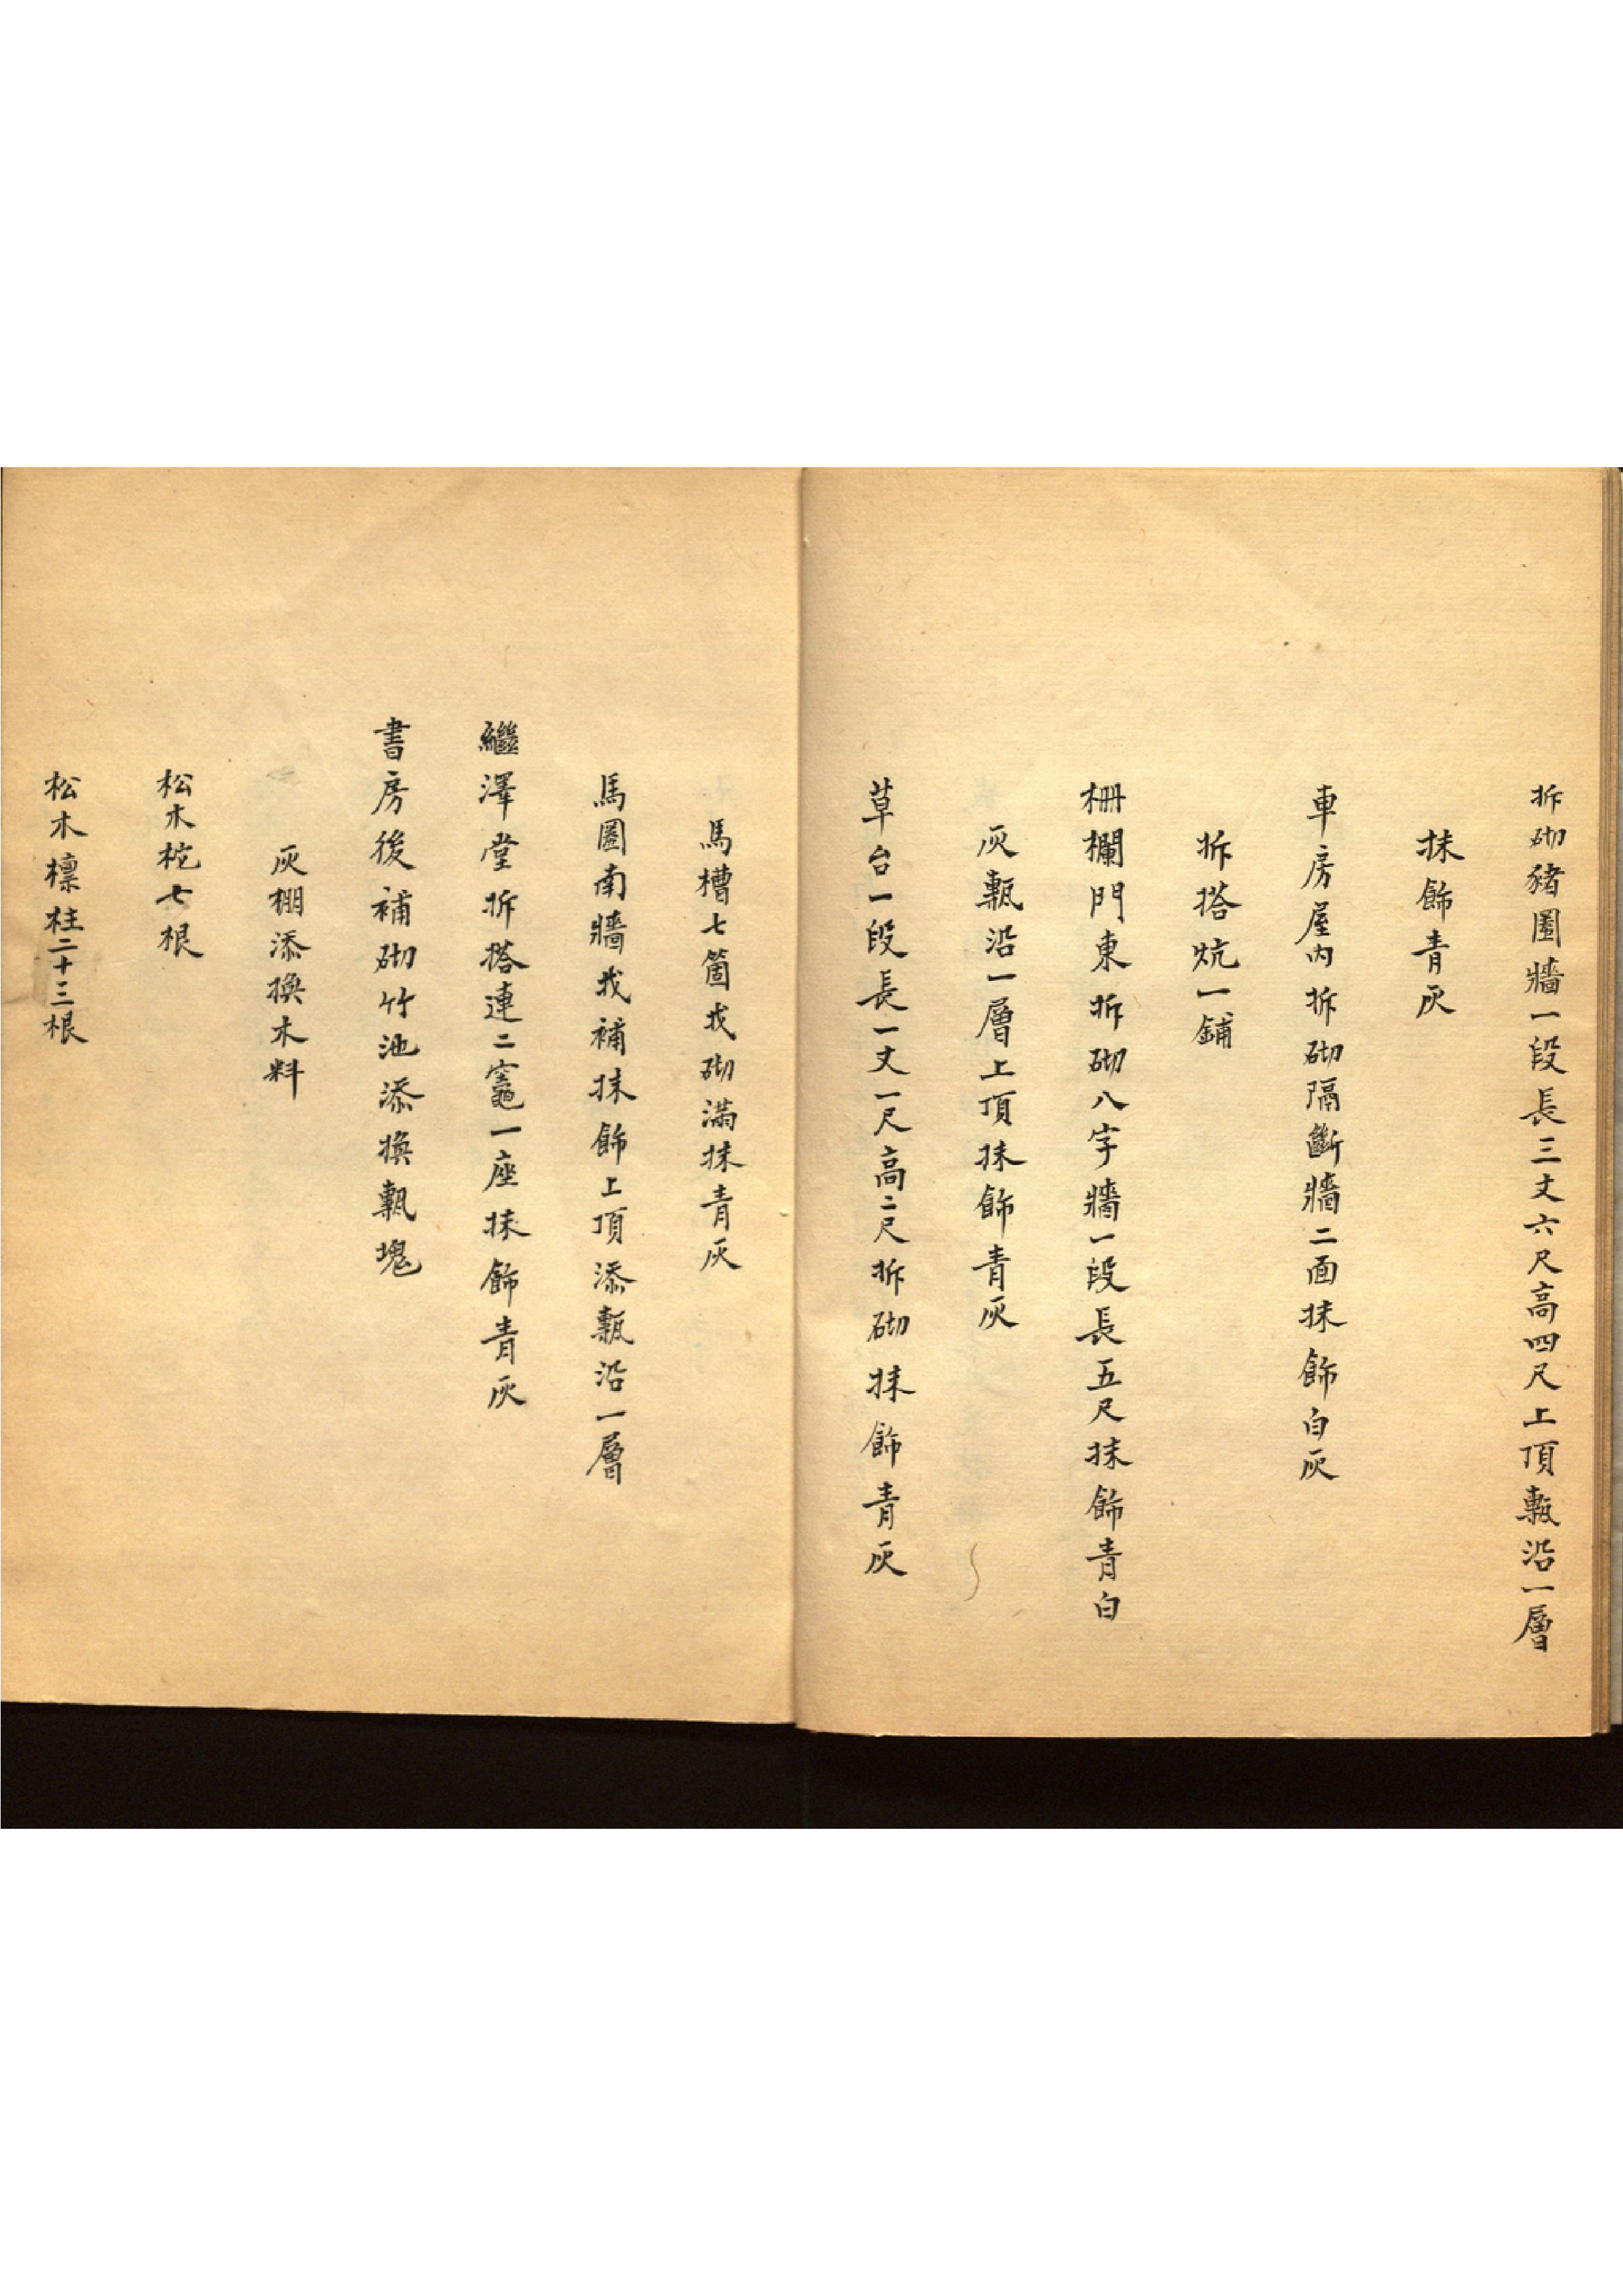 拆砌豬圈牆一段長三丈六尺高四尺上頂甎沿一層
抹飾青灰
車房屋內拆砌隔斷牆二面抹飾白灰
拆搭炕一鋪
柵欄門東拆砌八字牆一段長五尺抹飾青白
灰甎沿一層上頂抹飾青灰
草台一段長一丈一尺高二尺拆砌抹飾青灰
馬槽七箇找砌滿抹青灰
馬圈南牆找補抹飾上頂添甎沿一層
繼澤堂拆搭連二竈一座抹飾青灰
書房後補砌竹池添換甎塊
灰棚添換木料
松木柁七根
松木檁柱二十三根